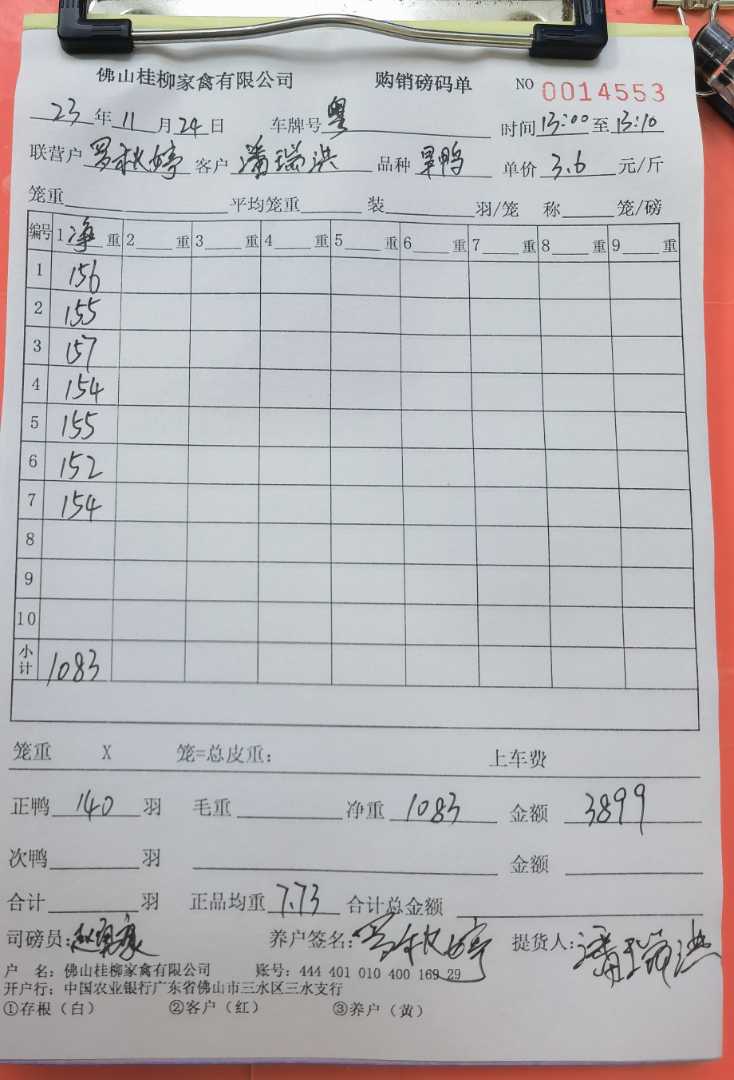 佛山桂柳家禽有限公司 购销磅码单 NO 0014553
23年11月24日 车牌号粤 时间13:00至13:10
联营户罗秋婷 客户潘瑞洪 品种旱鸭 单价3.6元/斤
笼重 平均笼重 装 羽/笼 称 笼/磅
编号 1净重 2重 3重 4重 5重 6重 7重 8重 9重
1 156
2 155
3 157
4 154
5 155
6 152
7 154
8
9
10
小计 1083
笼重 X 笼=总皮重: 上车费
正鸭140羽 毛重 净重1083 金额3899
次鸭 羽 金额
合计 羽 正品均重7.73 合计总金额
司磅员: 养户签名:罗秋婷 提货人:潘瑞洪
户 名:佛山桂柳家禽有限公司 账号:444 401 010 400 169 29
开户行:中国农业银行广东省佛山市三水区三水支行
①存根(白) ②客户(红) ③养户(黄)